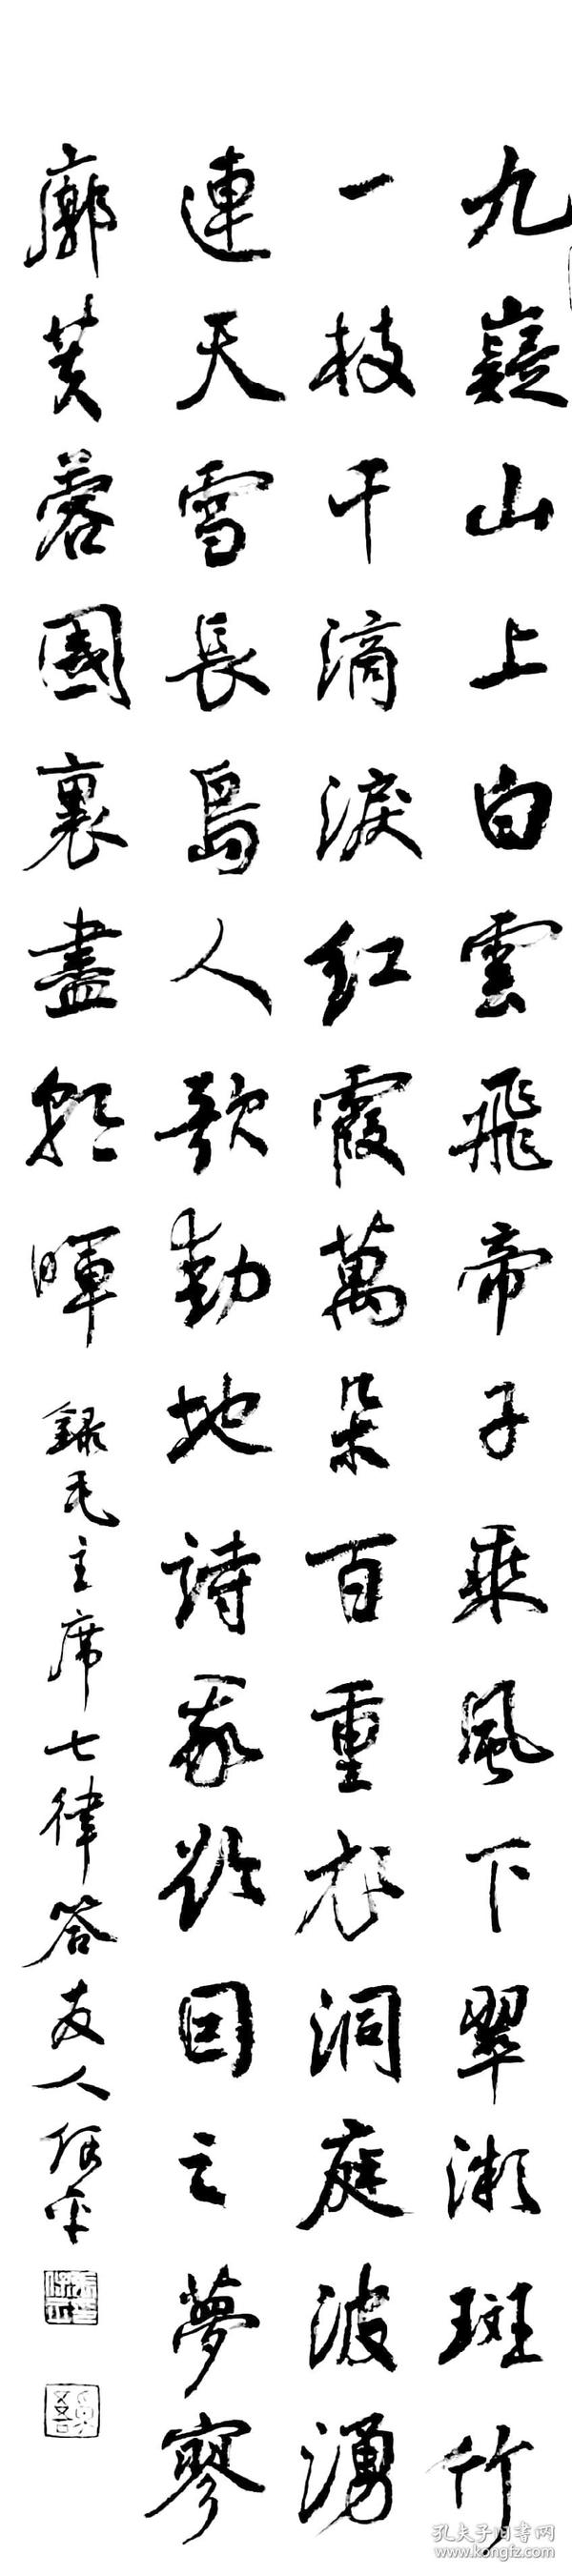 九嶷山上白雲飛帝子乘風下翠微斑竹
一枝千滴淚紅霞萬朵百重衣洞庭波湧
連天雪長島人歌動地詩我欲因之夢寥
廓芙蓉國裏盡朝暉
錄毛主席七律答友人
孔夫子旧书网
www.kongfz.com